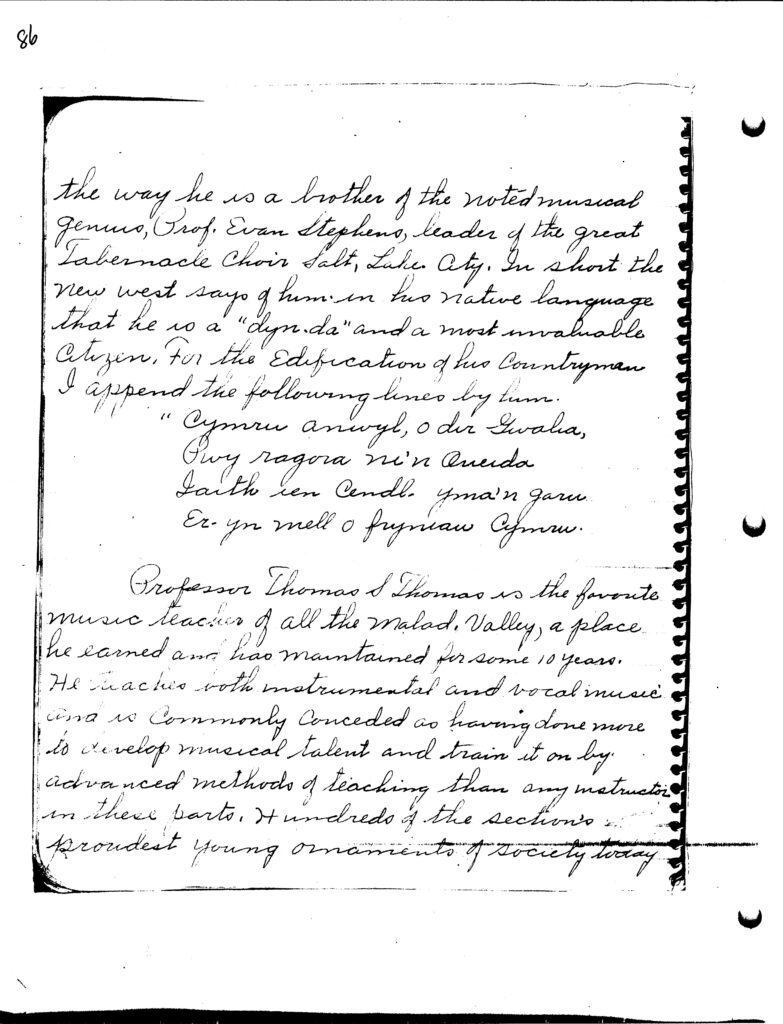 86
the way he is a brother of the noted musical
genius, Prof. Evan Stephens, leader of the great
Tabernacle Choir Salt, Lake City. In short the
New west says of him. in his native language
that he is a "dyn.da" and a most invaluable
Citizen. For the Edification of his Countryman
I append the following lines by him.
" Cymru anwyl, o dir Gwalia,
Pwy ragora ni'n Oneida
Iaith ien Cendl. yma'n garu
Er. yn mell o fryniau Cymru.
Professor Thomas S Thomas is the favorite
music teacher of all the Malad. Valley, a place
he earned and has maintained for some 10 years.
He teaches both instrumental and vocal music
and is Commonly Conceded as having done more
to develop musical talent and train it on by
advanced methods of teaching than any instructor
in these parts. Hundreds of the section's
proudest young ornaments of society today